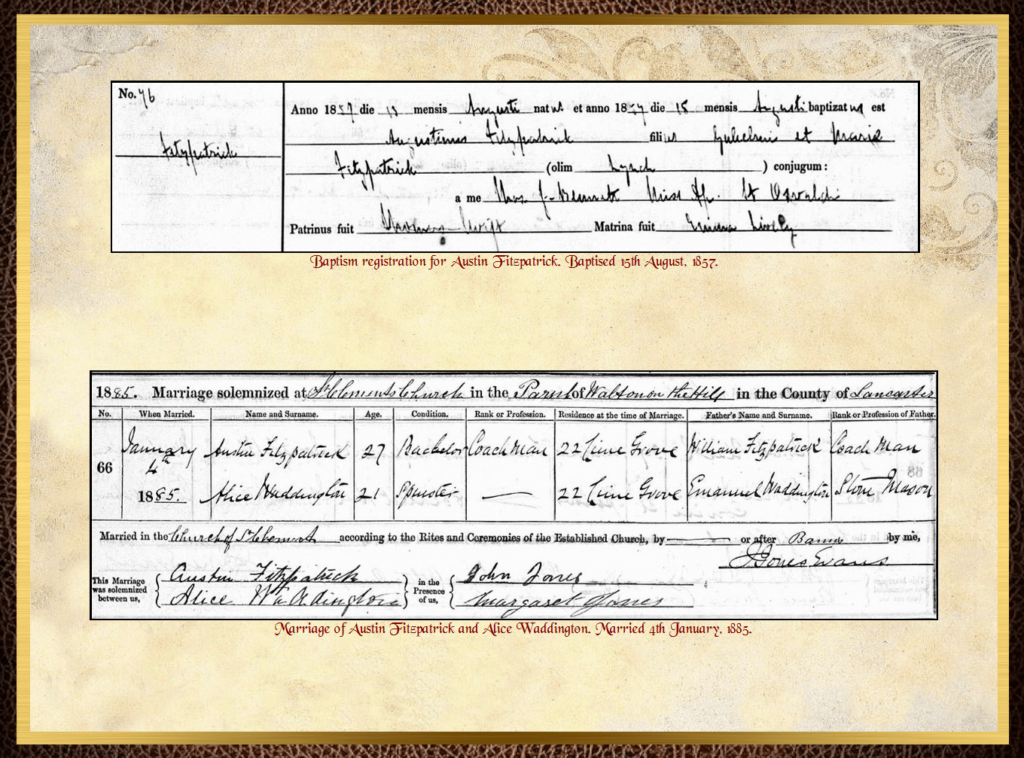 No. 76
Fitzpatrick
Anno 1857 die 13 mensis Augusti natus et anno 1857 die 15 mensis Augusti baptizatus est
Augustinus Fitzpatrick filius Gulielmi et Mariæ
Fitzpatrick (olim Lynch) conjugum:
a me Thos J. Bennett Miss Ap. St Oswaldi
Patrinus fuit Thomas Swift Matrina fuit Emma
Baptism registration for Austin Fitzpatrick. Baptised 15th August, 1857.
1885. Marriage solemnized at St Clements Church in the Parish of Walton on the Hill in the County of Lancaster
No. When Married. Name and Surname. Age. Condition. Rank or Profession. Residence at the time of Marriage. Father's Name and Surname. Rank or Profession of Father.
66 January 4th 1885. Austin Fitzpatrick 27 Bachelor Coach Man 22 Lime Grove William Fitzpatrick Coach Man
Alice Waddington 21 Spinster — 22 Lime Grove Emanuel Waddington Stone Mason
Married in the Church of St Clements according to the Rites and Ceremonies of the Established Church, by — or after Banns by me,
J Jones Evans
This Marriage was solemnized between us, Austin Fitzpatrick Alice Waddington in the Presence of us, John Jones Margaret Jones
Marriage of Austin Fitzpatrick and Alice Waddington. Married 4th January, 1885.